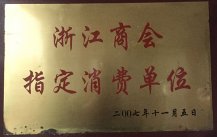 浙江商会
指定消费单位
二00七年十一月五日